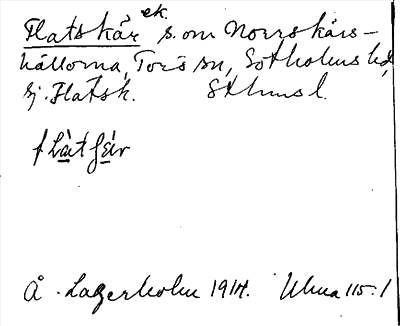 Flatskär ek. s. om Norrskärs-
hällorna, Torö sn, Sotholms hd,
Ej. Flatsk. Sthms l.
flàt ʃèr
Å. Lagerholm 1914. Uhua 115:1